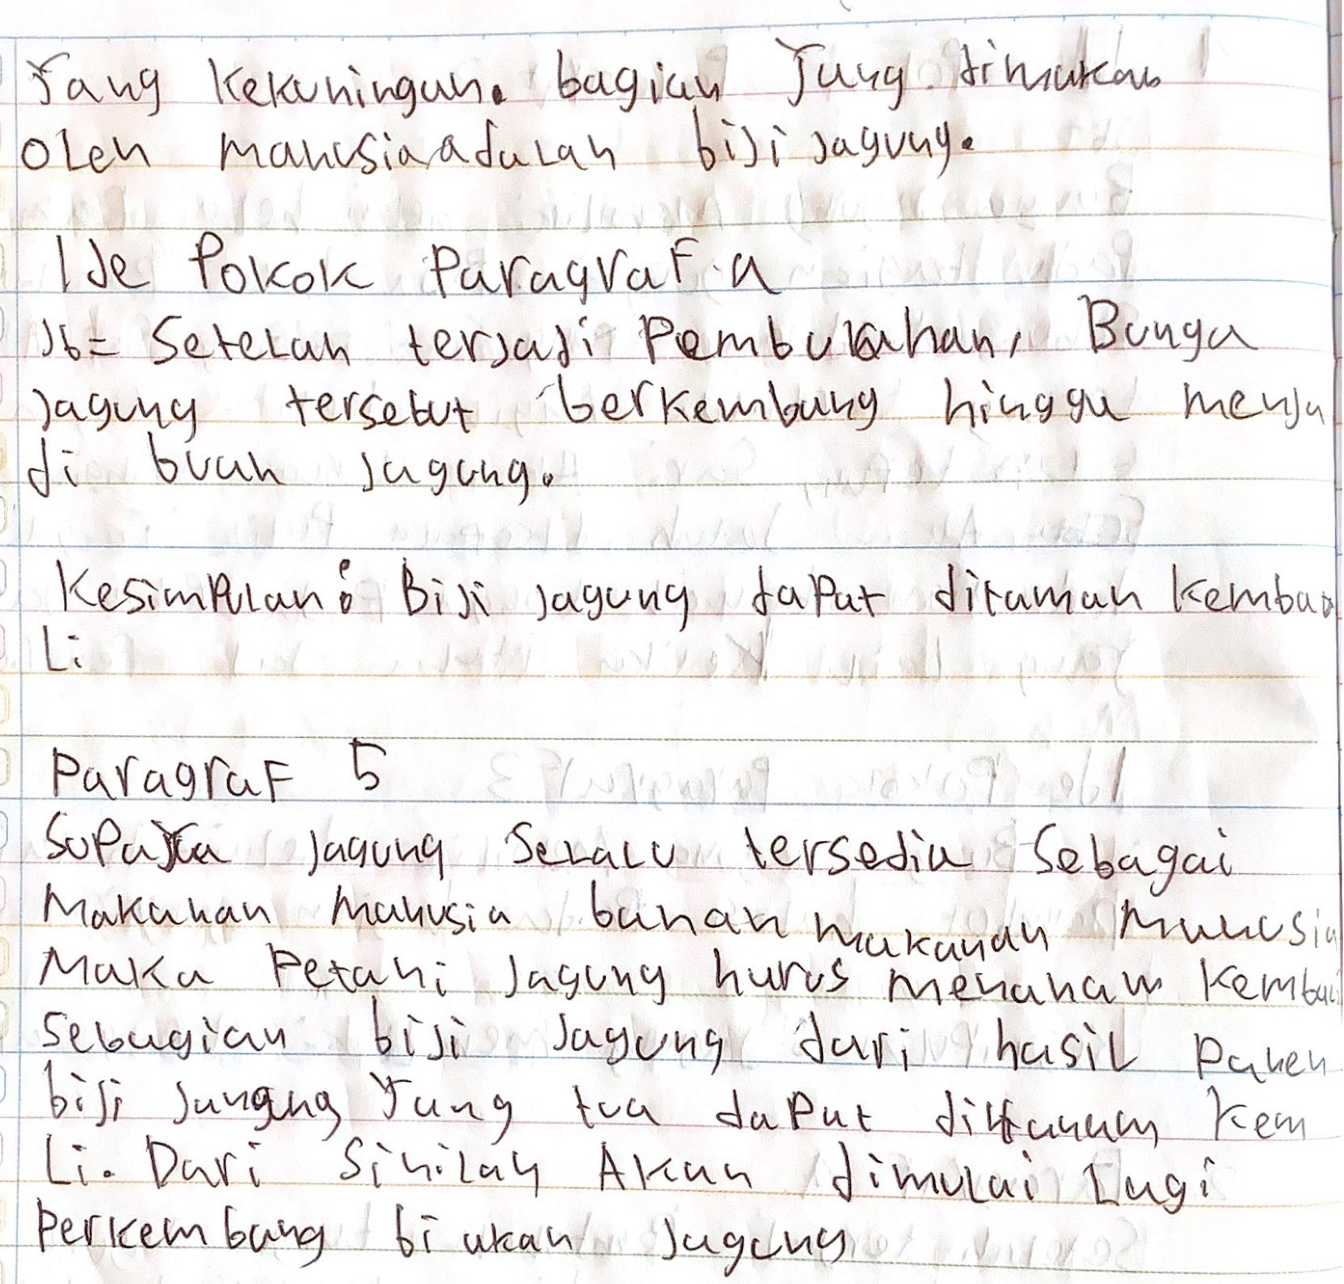 Yang kekuningan. bagian yang dimakan
oleh manusia adalah biji jagung.
Ide Pokok Paragraf a
Jb= Setelah terjadi Pembuahan, Bunga
jagung tersebut berkembang hingga menja
di buah jagung.
Kesimpulan: Biji jagung dapat ditanam kemba
Li
Paragraf 5
Supaya jagung Selalu tersedia Sebagai
Makanan Manusia bahan makanan Manusia
Maka Petani jagung harus menanam kembali
Sebagian biji jagung dari hasil Panen
biji jangung yang tua dapat ditanam kem
Li. Dari Sinilah Akan dimulai Lagi
Perkembang biakan jagung